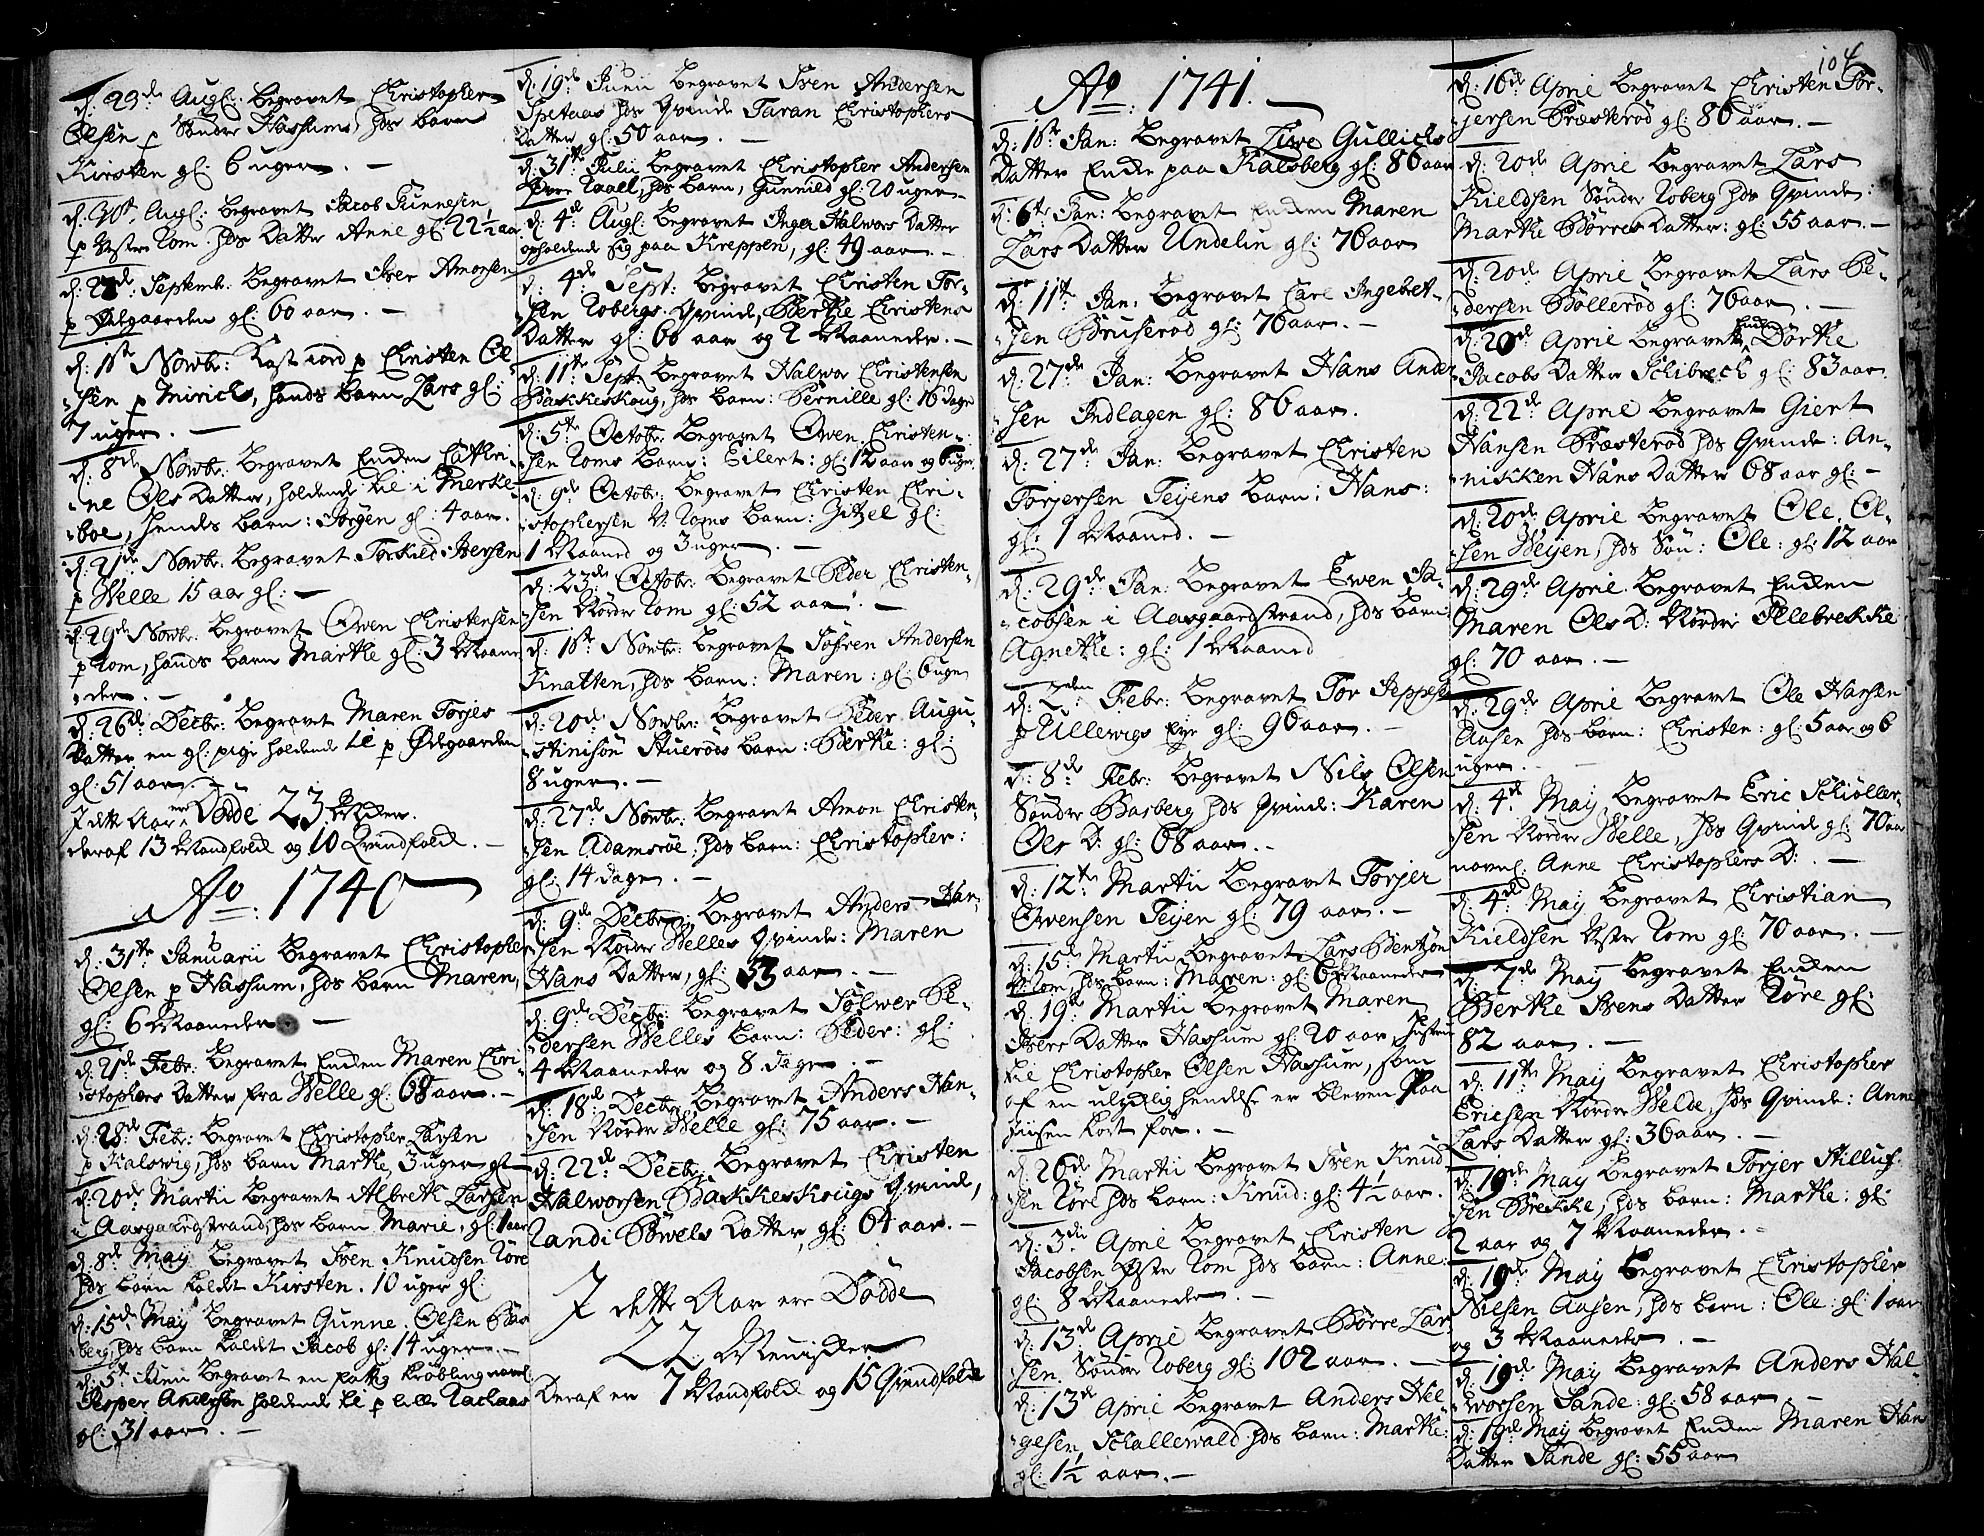 d: 23de Aug: begravet Christopher
Olsen p Søndre Hassums, hds barn
Kirsten gl: 6 uger. —
d: 30t Aug: begravet Jacob Gunnesen
p Østre Rom hds Datter Anne gl: 22½ aar
Septemb: begravet Iver Amonsen
p Ødegaarden gl: 60 aar. —
d: 1ste Novbr: Christen Ol-
sen p Mirichs, hands barn Lars gl:
7 uger. —
d: 8de Novbr: begravet Enken Cathri-
ne Ols Datter, holdende til i Merke-
boe, hendes barn: Jørgen gl: 4 aar.
d: 21de Novbr: begravet Torkild Iversen
p Welle 15 aar gl: —
d: 29de Novbr: begravet Owen Christensen
p Rom, hands barn Marthe gl: 3 Maane
der. —
d: 26de Decbr: begravet Maren Torjes
Datter en gl: pige holdende til p Ødegaarden
gl: 51 aar. —
I dette Aar ere Døde 23
deraf 13 Mandfolck og 10 Qvindfolck. —
Ao: 1740
d: 31te Januarii begravet Christopher
Olsen p Hassum, hds barn Maren,
gl: 6 Maaneder —
d: 21de Febr: begravet Enken Maren Chri-
stophers Datter fra Welle gl: 68 aar. —
d: 28de Febr: begravet Christopher Larsen
p Kalswig, hds barn Marthe, 3 uger gl —
d: 20de Martii begravet Albreth Larsen
i Aasgaardstrand, hds barn Marie, gl: 1 aar
d: 8de May begravet Iven Knudsen Røre
hds barn kaldt Kirsten. 10 uger gl:
d: 15de May begravet Gunne Olsen Bas
berg, hds barn kaldt Jacob gl: 14 uger. —
d: 5te Junii begravet en fattig Krøbling navnl:
Jesper Andersen holdende til p lille
gl: 31 aar. —
d: 19de Junii begravet Iven Andersen
Spetaas hds Qvinde Taran Christophers
Datter gl: 50 aar. —
d: 31te Julii begravet Christopher Andersen
Øvre Raael, hds barn, Gunnild gl: 20 uger —
d: 4de Aug: begravet Inger Halwors Datter
opholdende sig paa Kreppen, gl: 49 aar. —
d: 4de Sept: begravet Christen Tor-
sen Robergs Qvinde, Berthe Christens
Datter gl: 60 aar og 2 Maaneder. —
d: 11te Sept: begravet Halwor Christensen
Bakkeskoug, hds barn: Pernille gl: 16 dage
d: 5te Octobr: begravet Owen Christen-
sen Roms barn: Eilert: gl: 12 aar og 6 uger
d: 9de Octobr: begravet Christen Chri-
stophersen V: Roms barn: Zitzel gl:
1 Maaned og 3 uger. —
d: 23de Octobr: begravet Peder Christen-
sen Nordre Rom gl: 52 aar. —
d: 10te Novbr: begravet Søfren Andersen
Knatten, hds barn: Maren: gl: 6 uger
d: 20de Novbr: begravet Peder Augu-
stinisøn Stuerøds barn: Berthe: gl:
8 uger. —
d: 27de Novbr: begravet Amon Christen-
sen Adamsrøe: hds barn: Christopher:
gl: 14 dage. —
d: 9de Decbr: begravet Anders Han-
sen Nordre Welles Qvinde: Maren
Hans Datter, gl: 53 aar. —
d: 9de Decbr: begravet Sølwer Pe-
dersen Welles barn: Peder: gl:
4 Maaneder og 8 dage. —
d: 18de Decbr: begravet Anders Han-
sen Nordre Welle gl: 75 aar. —
d: 22de Decbr: begravet Christen
Halworsen Bakkeskougs Qvinde,
Randi Pøwels Datter, gl: 64 aar. —
I dette Aar ere Dødde
22 Mennisker
Deraf er 7 Mandfolck og 15 Qvindfolck
Ao: 1741. —
d: 1ste Jan: begravet Live Gullichs
Datter Enke paa Kalsberg gl: 86 aar
d: 6te Jan: begravet Enken Maren
Lars Datter Undelin gl: 76 aar
d: 11te Jan: begravet Carl Ingebret-
sen Bruserød gl: 70 aar. —
d: 27de Jan: begravet Hans Ander
sen Indlagen gl: 86 aar.
d: 27de Jan: begravet Christen
Torjersen Teyens barn: Hans:
gl: 1 Maaned. —
d: 29de Jan: begravet Ewen Ja-
cobsen i Aasgaardstrand, hds barn
Agnethe: gl: 1 Maaned
d: 2den Febr: begravet Tor Jeppesen
p Ullewigs Eye gl: 90 aar. —
d: 8de Febr: begravet Nils Olsen
Søndre Basberg hds Qvinde: Karen
Ols D: gl: 68 aar. —
d: 12te Martii begravet Torjer
Owensen Teyen gl: 79 aar. —
d: 15de Martii begravet Lars Bentzøn
V: Rom, hds barn: Maren: gl: 6 Maaneder
d: 19de Martii begravet Maren
Ivers Datter Hassum gl: 20 aar Hustru
til Christopher Olsen Hassum, som
af en ulyckelig hendelse er bleven
kort før. —
d: 26de Martii begravet Iven Knud
sen Røre hds barn: Knud: gl: 4½ aar.
d: 3die April begravet Christen
Jacobsen Østre Rom hds barn: Anne:
gl: 8 Maaneder. —
d: 13de April begravet Børre Lar
sen Søndre Roberg gl: 102 aar. —
d: 13de April begravet Anders Hel-
gesen Schallewald hds barn: Marthe:
gl: 1½ aar. —
104
d: 16de April begravet Christen Tor-
jersen Præsterød gl: 80 aar. —
d: 20de April begravet Lars
Kieldsen Søndre Roberg hds Qvinde:
Marthe Børres Datter: gl: 55 aar. —
d: 20de April begravet Lars Pe-
dersen Bollerød gl: 76 aar. —
d: 20de April begravet Enken Dorthe
Jacobs Datter Schibrech gl: 83 aar.
d: 22de April begravet Giert
Hansen Præsterød hds Qvinde: An-
nikken Hans Datter 68 aar gl: —
d: 20de April begravet Ole Ol-
sen Weyen, hds Søn: Ole: gl: 12 aar
d: 29de April begravet Enken
Maren Ols D: Nordre Illebrekke
gl: 70 aar. —
d: 29de April begravet Ole Hansen
Aasen hds barn: Christen: gl: 5 aar og 6
uger. —
d: 4de May begravet Eric Schiøller-
sen Nordre Welle, hds Qvinde gl: 70 aar
navnl: Anne Christophers D: —
d: 4de May begravet Christian
Kieldsen Østre Rom gl: 70 aar. —
d: 7de May begravet Enken
Berthe Ivens Datter Røre gl:
82 aar. —
d: 11te May begravet Christopher
Ericsen Nordre Welde, hds Qvinde: Anne
Lars Datter gl: 36 aar. —
d: 19de May begravet Torjer Stilluf-
sen Brekke, hds barn: Marthe: gl:
2 aar og 7 Maaneder. —
d: 19de May begravet Christopher
Nielsen Aasen, hds barn: Ole: gl: 1 aar
og 3 Maaneder. —
d: 19de May begravet Anders Hal-
worsen Sande: gl: 58 aar —
d: 19de May begravet Enken Maren Han
Datter Sande gl: 55 aar